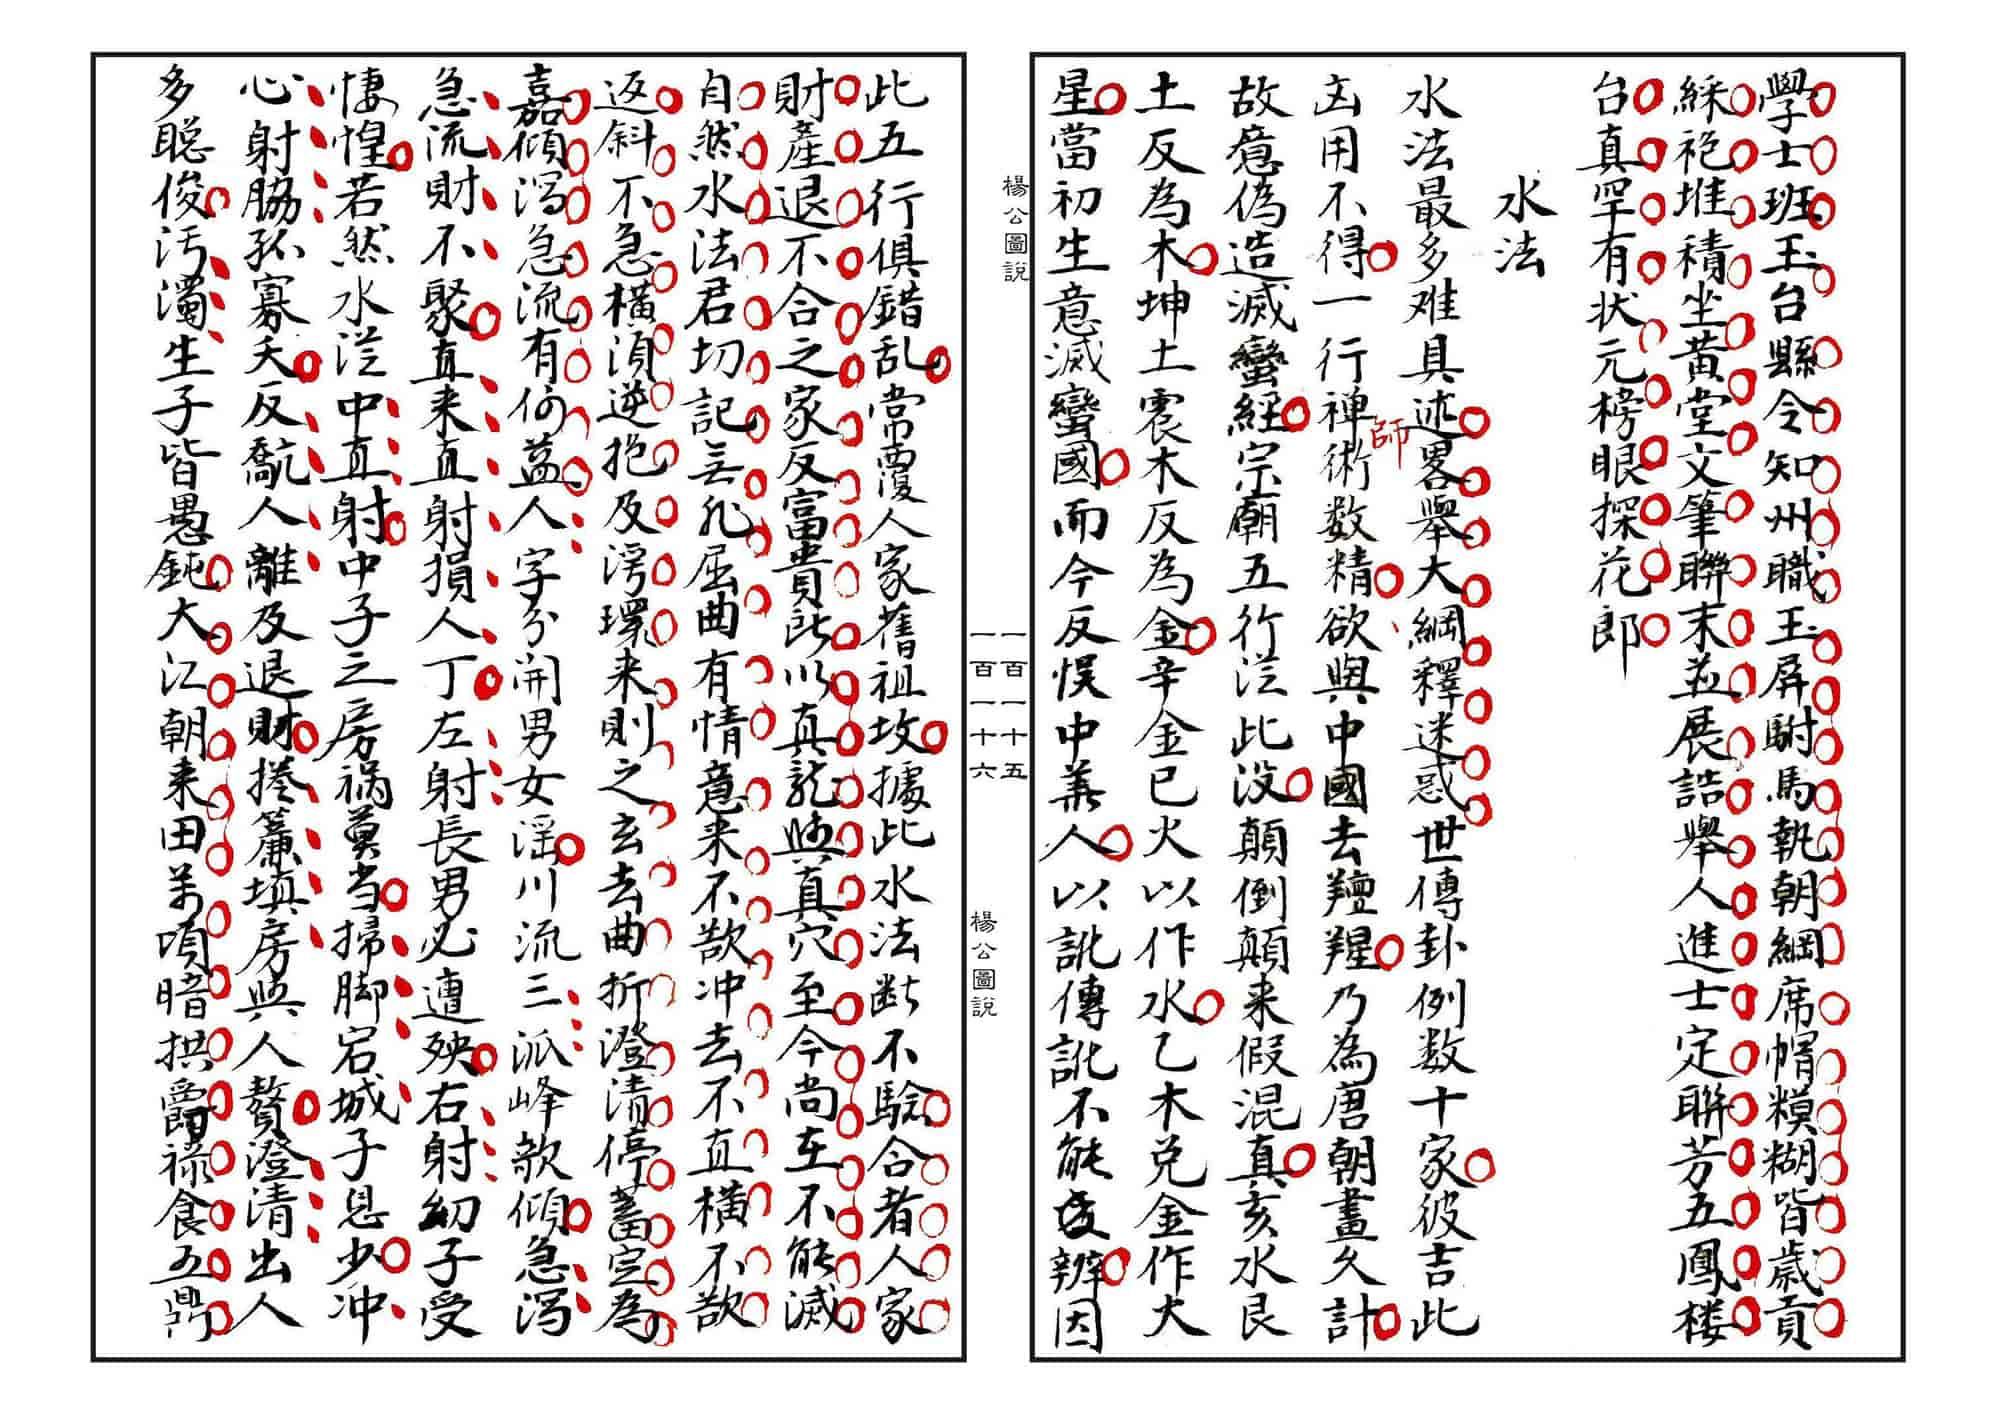 學士班玉台縣令知州職玉屏駙馬執朝綱席帽糢糊皆歲貢
綵袍堆積坐黃堂文筆聯末並展誥舉人進士定聯芳五鳳楼
台真罕有状元榜眼探花郎
水法
水法最多难具述畧舉大綱釋迷惑世傳卦例数十家彼吉此
凶用不得一行禅師術数精欲與中國去羶腥乃為唐朝畫久計
故意偽造滅蠻經宗廟五行従此没顛倒顛来假混真亥水艮
土反為木坤土震木反為金辛金巳火以作水乙木兑金作大
星當初生意滅蠻國而今反悮中華人以訛傳訛不能辨因
楊公圖說
一百一十五
一百一十六
楊公圖說
此五行俱錯乱常覆人家舊祖坟據此水法断不驗合者人家
財產退不合之家反富貴所以真龍與真穴至今尚在不能滅
自然水法君切記無非屈曲有情意来不欲冲去不直横不欲
返斜不急横須逆抱及湾環来則之玄去曲折澄清停蓄定為
嘉傾瀉急流有何益八字分開男女淫川流三派峰歌傾急瀉
急流財不聚直来直射損人丁左射長男必遭殃右射幼子受
悽惶若然水従中直射中子之房祸奠当掃脚宕城子息少冲
心射脇孤寡夭反觔人離及退財捲簾填房與人贅澄清出人
多聪俊汚濁生子皆愚鈍大江朝来田萬頃暗拱爵禄食五鼎